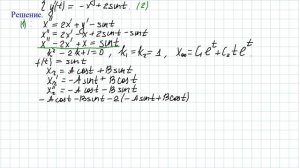 y'(t) = -x + 2sint. (2)
Решение.
(1) x' = 2x + y' - sint
x'' = 2x' - x + 2sint - sint
x'' - 2x' + x = sint
k² - 2k + 1 = 0, k₁ = k₂ = 1, x₀₀ = C₁e^t + C₂te^t
f(t) = sint
= Acost + Bsint
= -Asint + Bcost
= -Acost - Bsint
-Acost - Bsint - 2(-Asint + Bcost)